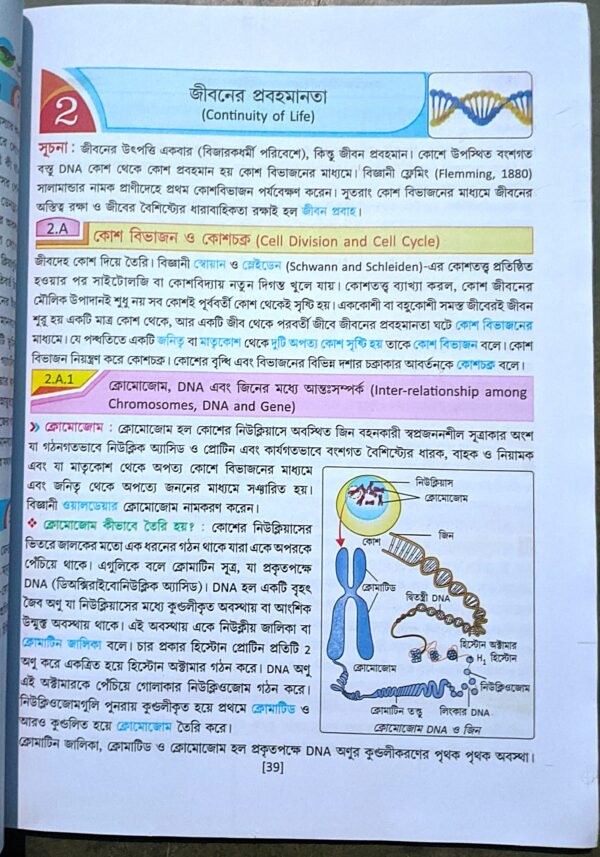 2
জীবনের প্রবহমানতা
(Continuity of Life)
সূচনা : জীবনের উৎপত্তি একবার (বিজারকধর্মী পরিবেশে), কিন্তু জীবন প্রবহমান। কোশে উপস্থিত বংশগত
বস্তু DNA কোশ থেকে কোশ প্রবহমান হয় কোশ বিভাজনের মাধ্যমে। বিজ্ঞানী ফ্লেমিং (Flemming, 1880)
সালামান্ডার নামক প্রাণীদেহে প্রথম কোশবিভাজন পর্যবেক্ষণ করেন। সুতরাং কোশ বিভাজনের মাধ্যমে জীবনের
অস্তিত্ব রক্ষা ও জীবের বৈশিষ্ট্যের ধারাবাহিকতা রক্ষাই হল জীবন প্রবাহ।
2.A
কোশ বিভাজন ও কোশচক্র (Cell Division and Cell Cycle)
জীবদেহ কোশ দিয়ে তৈরি। বিজ্ঞানী স্বোয়ান ও স্লেইডেন (Schwann and Schleiden)-এর কোশতত্ত্ব প্রতিষ্ঠিত
হওয়ার পর সাইটোলজি বা কোশবিদ্যায় নতুন দিগন্ত খুলে যায়। কোশতত্ত্ব ব্যাখ্যা করল, কোশ জীবনের
মৌলিক উপাদানই শুধু নয় সব কোশই পূর্ববর্তী কোশ থেকেই সৃষ্টি হয়। এককোশী বা বহুকোশী সমস্ত জীবেরই জীবন
শুরু হয় একটি মাত্র কোশ থেকে, আর একটি জীব থেকে পরবর্তী জীবে জীবনের প্রবহমানতা ঘটে কোশ বিভাজনের
মাধ্যমে। যে পদ্ধতিতে একটি জনিতৃ বা মাতৃকোশ থেকে দুটি অপত্য কোশ সৃষ্টি হয় তাকে কোশ বিভাজন বলে। কোশ
বিভাজন নিয়ন্ত্রণ করে কোশচক্র। কোশের বৃদ্ধি এবং বিভাজনের বিভিন্ন দশার চক্রাকার আবর্তনকে কোশচক্র বলে।
2.A.1
ক্রোমোজোম, DNA এবং জিনের মধ্যে আন্তঃসম্পর্ক (Inter-relationship among
Chromosomes, DNA and Gene)
ক্রোমোজোম : ক্রোমোজোম হল কোশের নিউক্লিয়াসে অবস্থিত জিন বহনকারী স্বপ্রজননশীল সূত্রাকার অংশ
যা গঠনগতভাবে নিউক্লিক অ্যাসিড ও প্রোটিন এবং কার্যগতভাবে বংশগত বৈশিষ্ট্যের ধারক, বাহক ও নিয়ামক
এবং যা মাতৃকোশ থেকে অপত্য কোশে বিভাজনের মাধ্যমে
এবং জনিতৃ থেকে অপত্যে জননের মাধ্যমে সঞ্চারিত হয়।
বিজ্ঞানী ওয়ালডেয়ার ক্রোমোজোম নামকরণ করেন।
❖ ক্রোমোজোম কীভাবে তৈরি হয়? : কোশের নিউক্লিয়াসের
ভিতরে জালকের মতো এক ধরনের গঠন থাকে যারা একে অপরকে
পেঁচিয়ে থাকে। এগুলিকে বলে ক্রোমাটিন সূত্র, যা প্রকৃতপক্ষে
DNA (ডিঅক্সিরাইবোনিউক্লিক অ্যাসিড)। DNA হল একটি বৃহৎ
জৈব অণু যা নিউক্লিয়াসের মধ্যে কুণ্ডলীকৃত অবস্থায় বা আংশিক
উন্মুক্ত অবস্থায় থাকে। এই অবস্থায় একে নিউক্লীয় জালিকা বা
ক্রোমাটিন জালিকা বলে। চার প্রকার হিস্টোন প্রোটিন প্রতিটি 2
অণু করে একত্রিত হয়ে হিস্টোন অক্টামার গঠন করে। DNA অণু
এই অক্টামারকে পেঁচিয়ে গোলাকার নিউক্লিওজোম গঠন করে।
নিউক্লিওজোমগুলি পুনরায় কুণ্ডলীকৃত হয়ে প্রথমে ক্রোমাটিড ও
আরও কুণ্ডলিত হয়ে ক্রোমোজোম তৈরি করে।
নিউক্লিয়াস
ক্রোমোজোম
কোশ
জিন
ক্রোমাটিড
দ্বিতন্ত্রী DNA
হিস্টোন অক্টামার
H₁ হিস্টোন
ক্রোমোজোম
নিউক্লিওজোম
ক্রোমাটিন তন্তু
লিংকার DNA
ক্রোমোজোম DNA ও জিন
ক্রোমাটিন জালিকা, ক্রোমাটিড ও ক্রোমোজোম হল প্রকৃতপক্ষে DNA অণুর কুণ্ডলীকরণের পৃথক পৃথক অবস্থা।
[39]